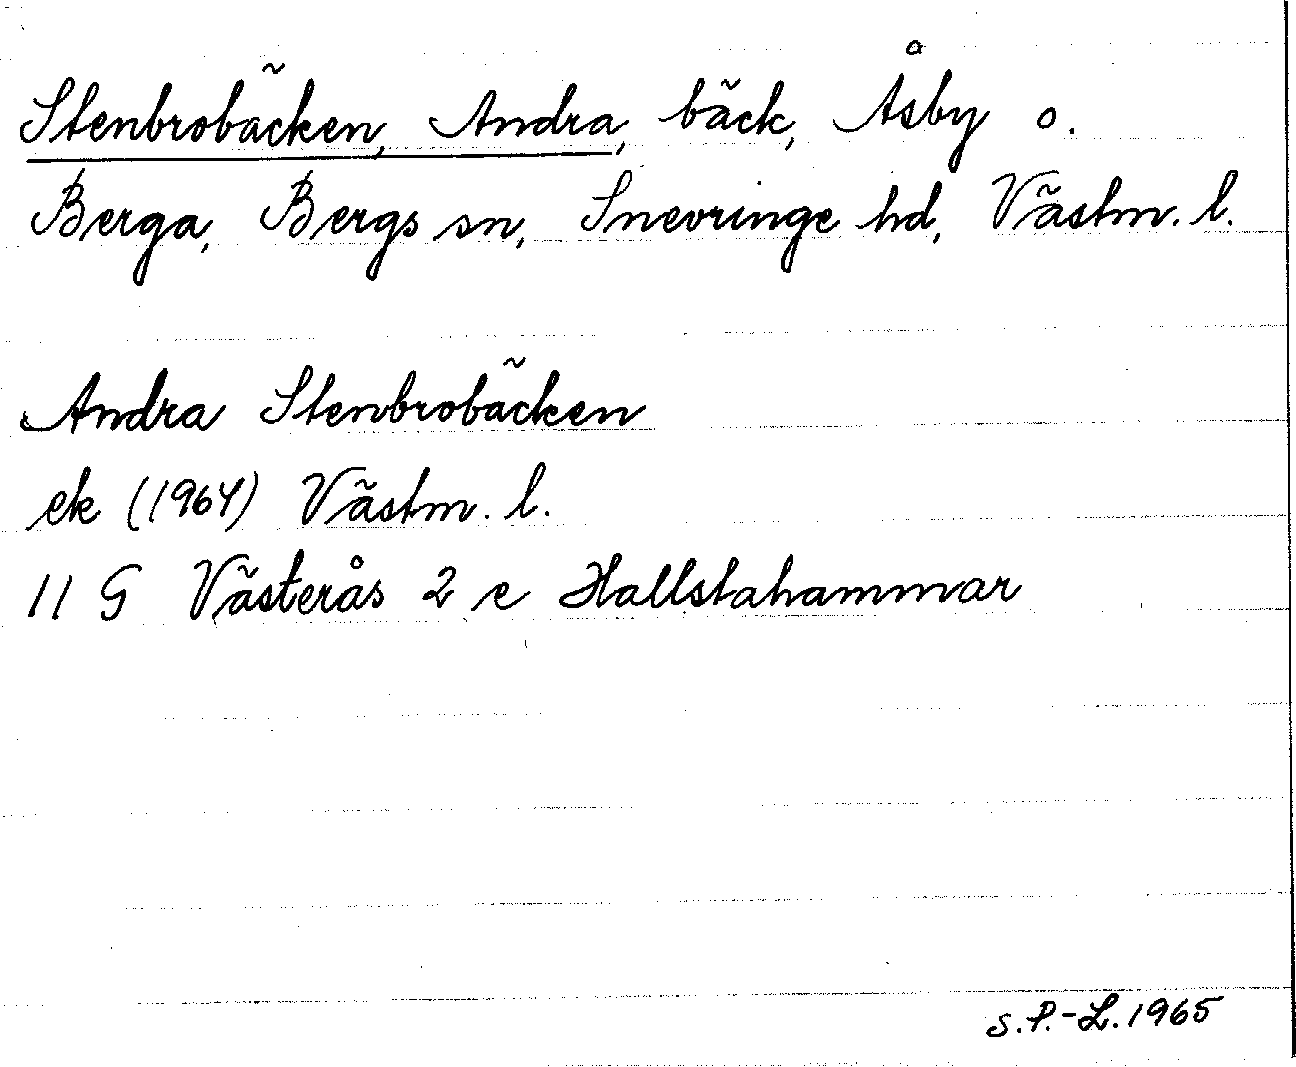 Stenbrobäcken, Andra, bäck, Åsby o.
Berga, Bergs sn, Snevringe hd, Västm. l.
Andra Stenbrobäcken
ek (1964) Västm. l.
11 G Västerås 2 e Hallstahammar
S.P.-L. 1965